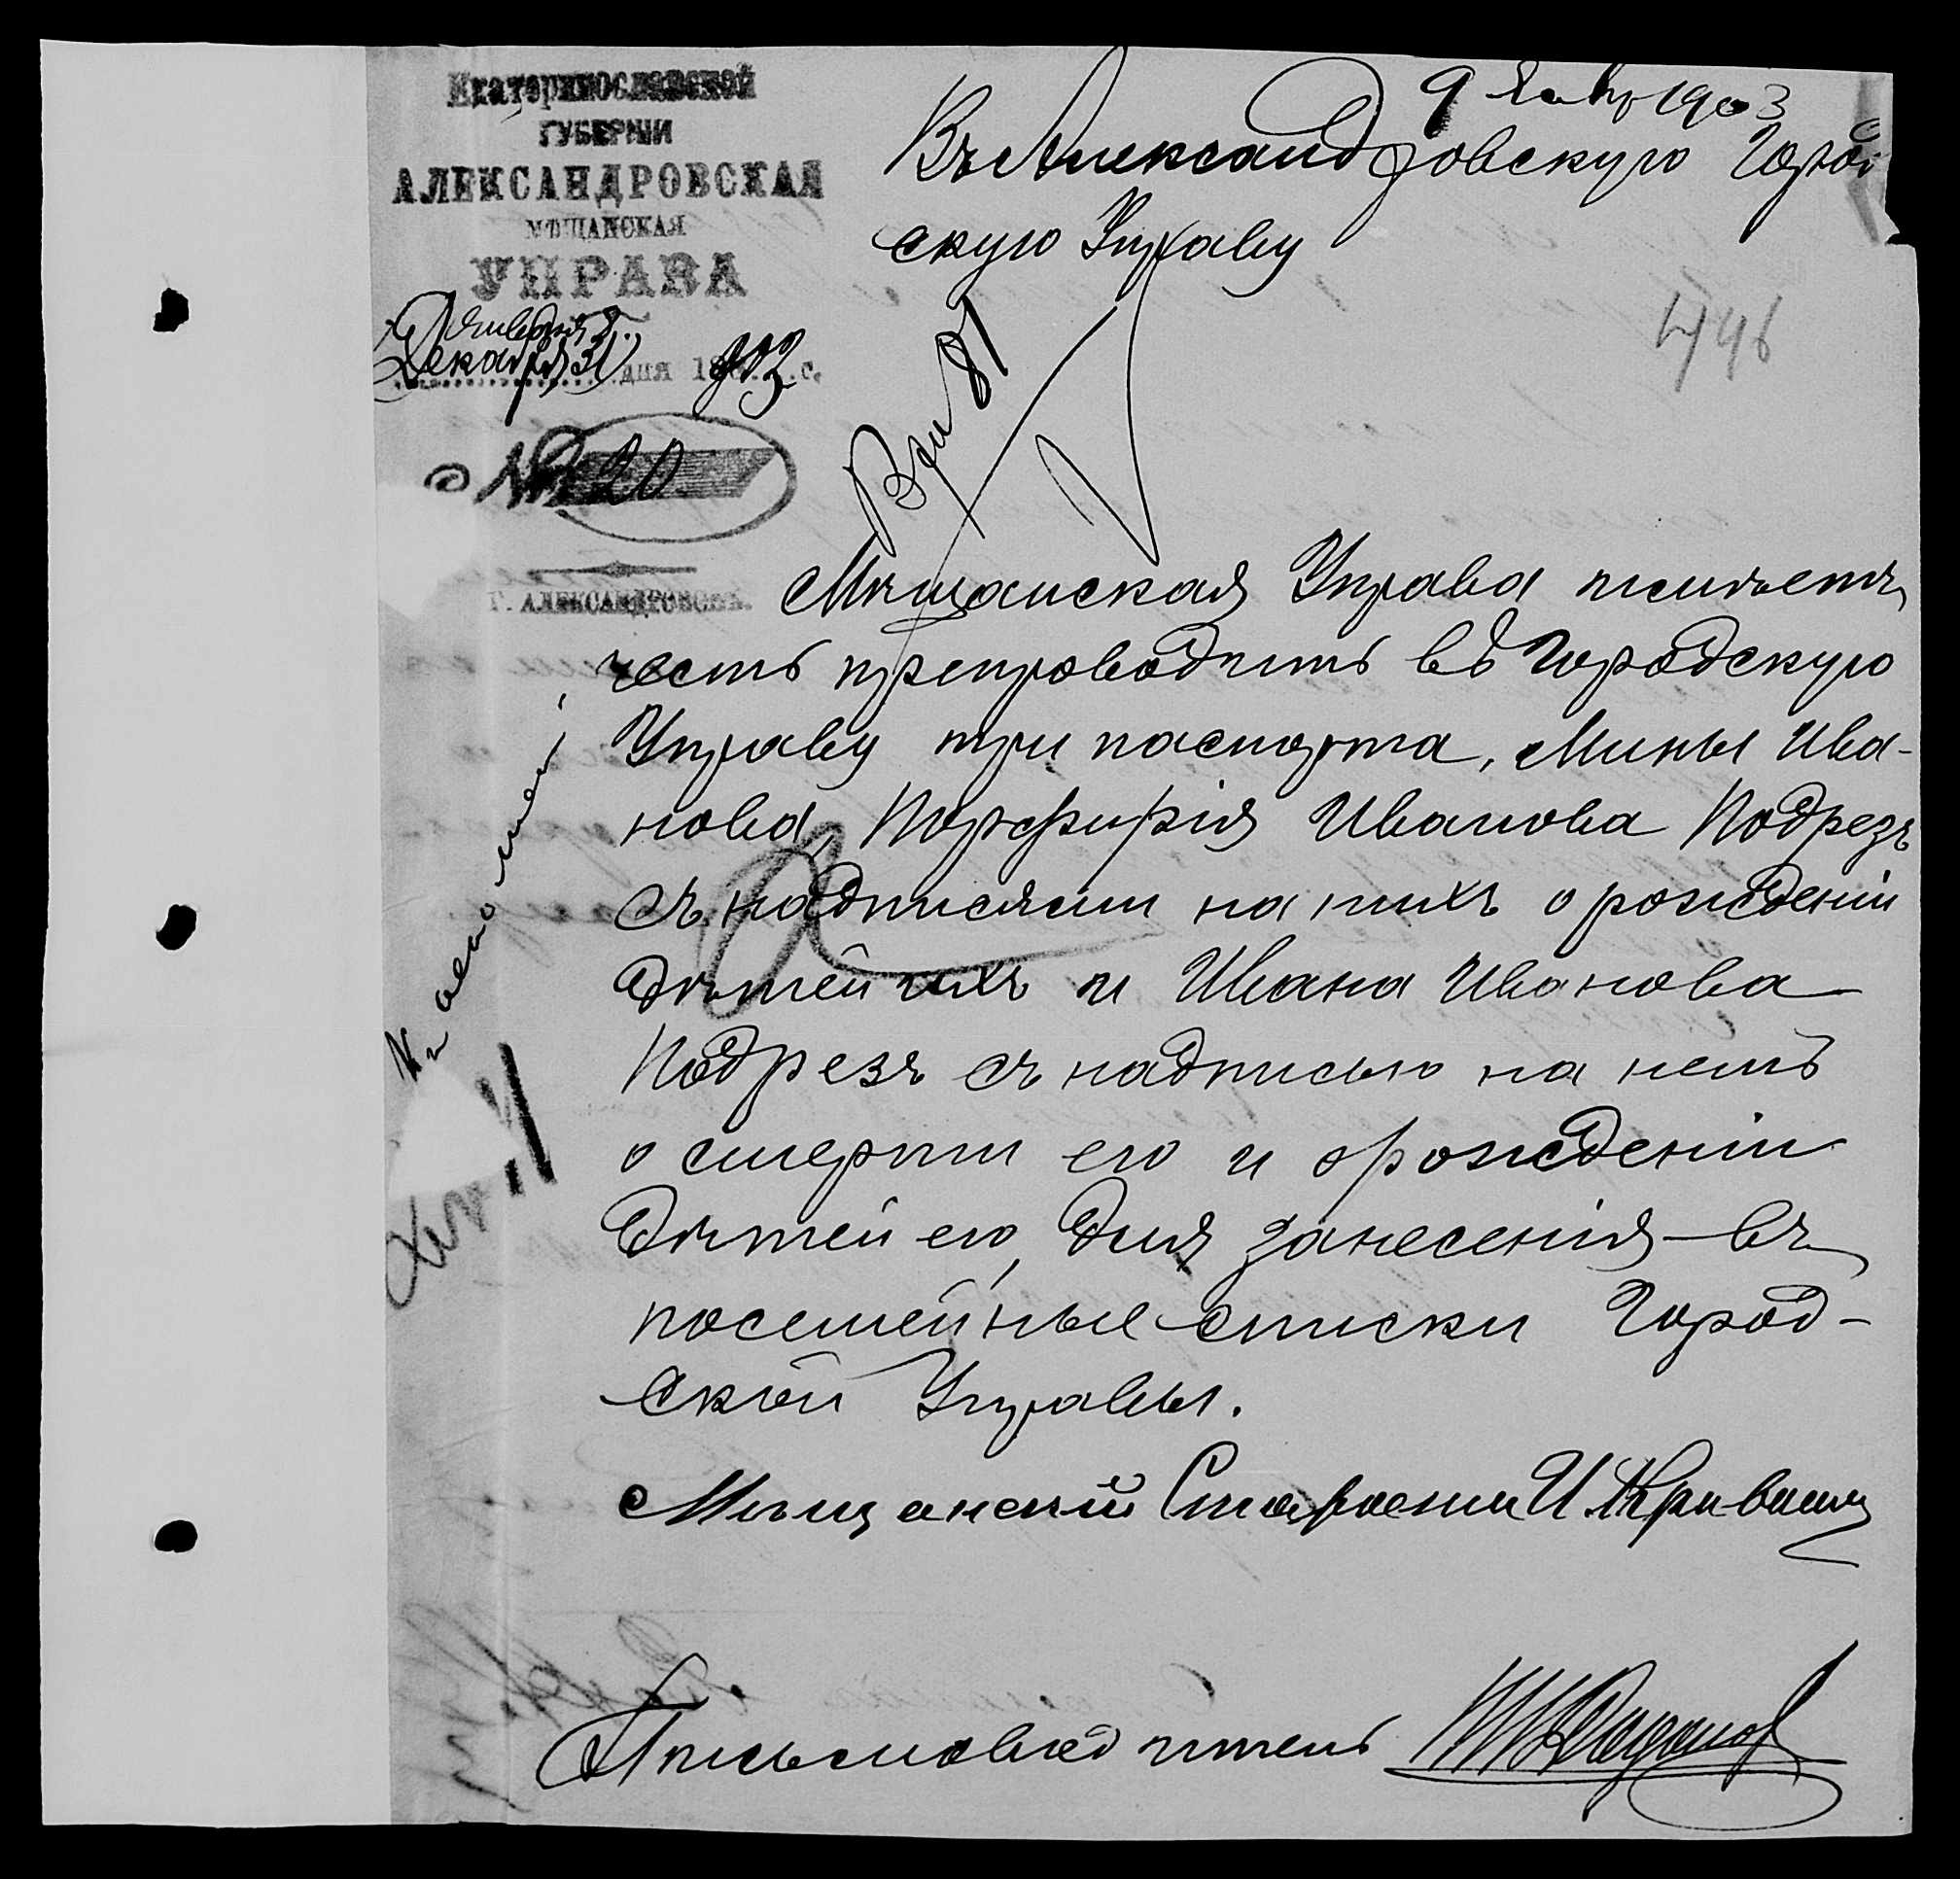 Екатеринославской
ГУБЕРНІИ
АЛЕКСАНДРОВСКАЯ
МѢЩАНСКАЯ
УПРАВА
Января
Декабря 31 дня 1903 с.
№ 20
Г. АЛЕКСАНДРОВСКЪ.
9 Янв 1903
Въ Александровскую Город
скую Управу
446
81
Мѣщанская Управа имѣетъ
честь препроводить въ Городскую
Управу три паспорта, Мины Ива-
нова, Порфирія Иванова Подрезъ
съ надписями на нихъ о рожденіи
дѣтей ихъ и Ивана Иванова
Подрезъ съ надписью на немъ
о смерти его и о рожденіи
дѣтей его, для занесенія въ
посемейные списки Город-
ской Управы.
Мѣщанскій Староста И
Письмоводитель